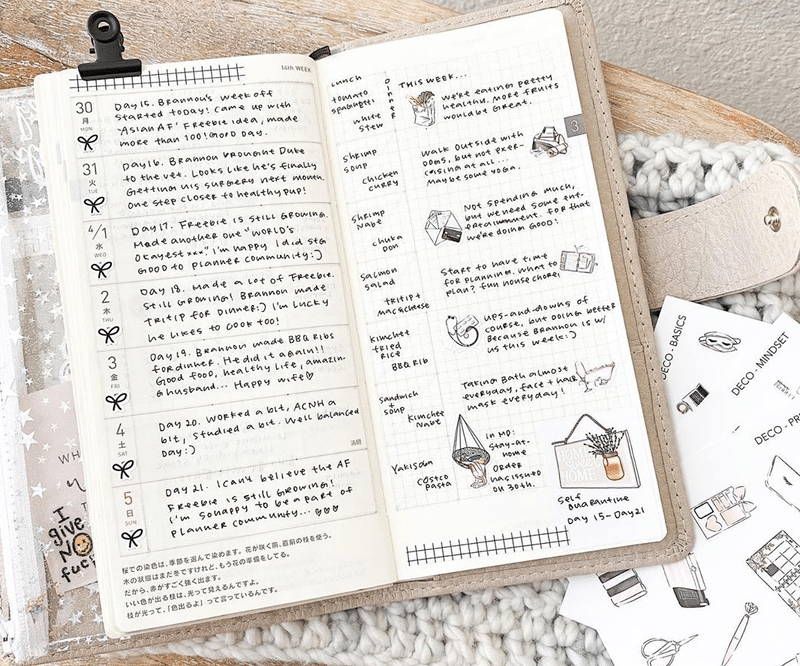 14th WEEK
30
月
MON
Day 15. Brannon's week off
started today! Came up with
"Asian AF" Freebie idea, made
more than 100! Good day.
31
火
TUE
Day 16. Brannon brought Duke
to the vet. Looks like he's finally
getting his surgery next month.
One step closer to healthy pup!
4/1
水
WED
Day 17. Freebie is still growing.
Made another one "World's
okayest xxx." I'm happy I did stg
good to planner community:)
2
木
THU
Day 18. Made a lot of Freebie.
Still growing! Brannon made
tritip for dinner:) I'm lucky
he likes to cook too!
3
金
FRI
Day 19. Brannon made BBQ Ribs
for dinner. He did it again!!
Good food, healthy life, amazin-
g husband... Happy wife♡
4
土
SAT
Day 20. Worked a bit, ACNH a
bit, studied a bit. Well balanced
Day:)
清明
5
日
SUN
Day 21. I can't believe the AF
Freebie is still growing!
I'm so happy to be a part of
planner community... ♡♡♡
桜での染色は、季節を選んで染めます。花が咲く前、直前の枝を使う。
木の状態はまだ冬ですけれど、もう花の準備をしてる。
だから、赤がすごく強く出ます。
いい色が出る枝は、光って見えるんですよ。
枝が光って、「色出るよ」って言っているんです。
Lunch
Dinner
tomato
spaghetti
white
stew
shrimp
soup
chicken
curry
shrimp
nabe
chuka
don
salmon
salad
tritip +
mac&cheese
kimchee
fried
rice
BBQ rib
sandwich
+
soup
kimchee
nabe
yakisoba
costco
pasta
THIS WEEK...
We're eating pretty
healthy. More fruits
would be great.
3
Walk outside with
dogs, but not exer-
cising at all...
Maybe some yoga.
Not spending much,
but we need some ent-
ertainment. For that
we're doing good!
Start to have time
for planning. What to
plan? Fun house chore!
Ups-and-downs of
course, but doing better
because Brannon is w/
us this week:)
Taking bath almost
everyday, face + hair
mask everyday!
In MD:
Stay-at-
home
order
has issued
on 30th.
HOME
SWEET
HOME
Self
Quarantine
Day 15-Day 21
I
give
NO
DECO - BASICS
DECO - MINDSET